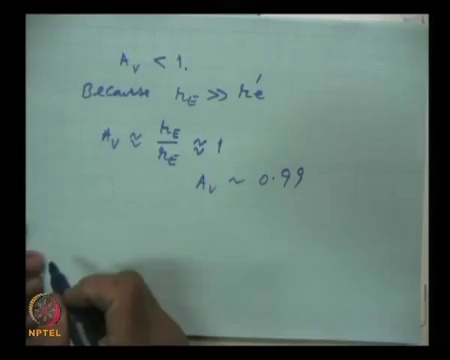 A_V < 1.
Because r_E ≫ r'e
A_V ≈ r_E / r_E ≈ 1
A_V ~ 0.99
NPTEL